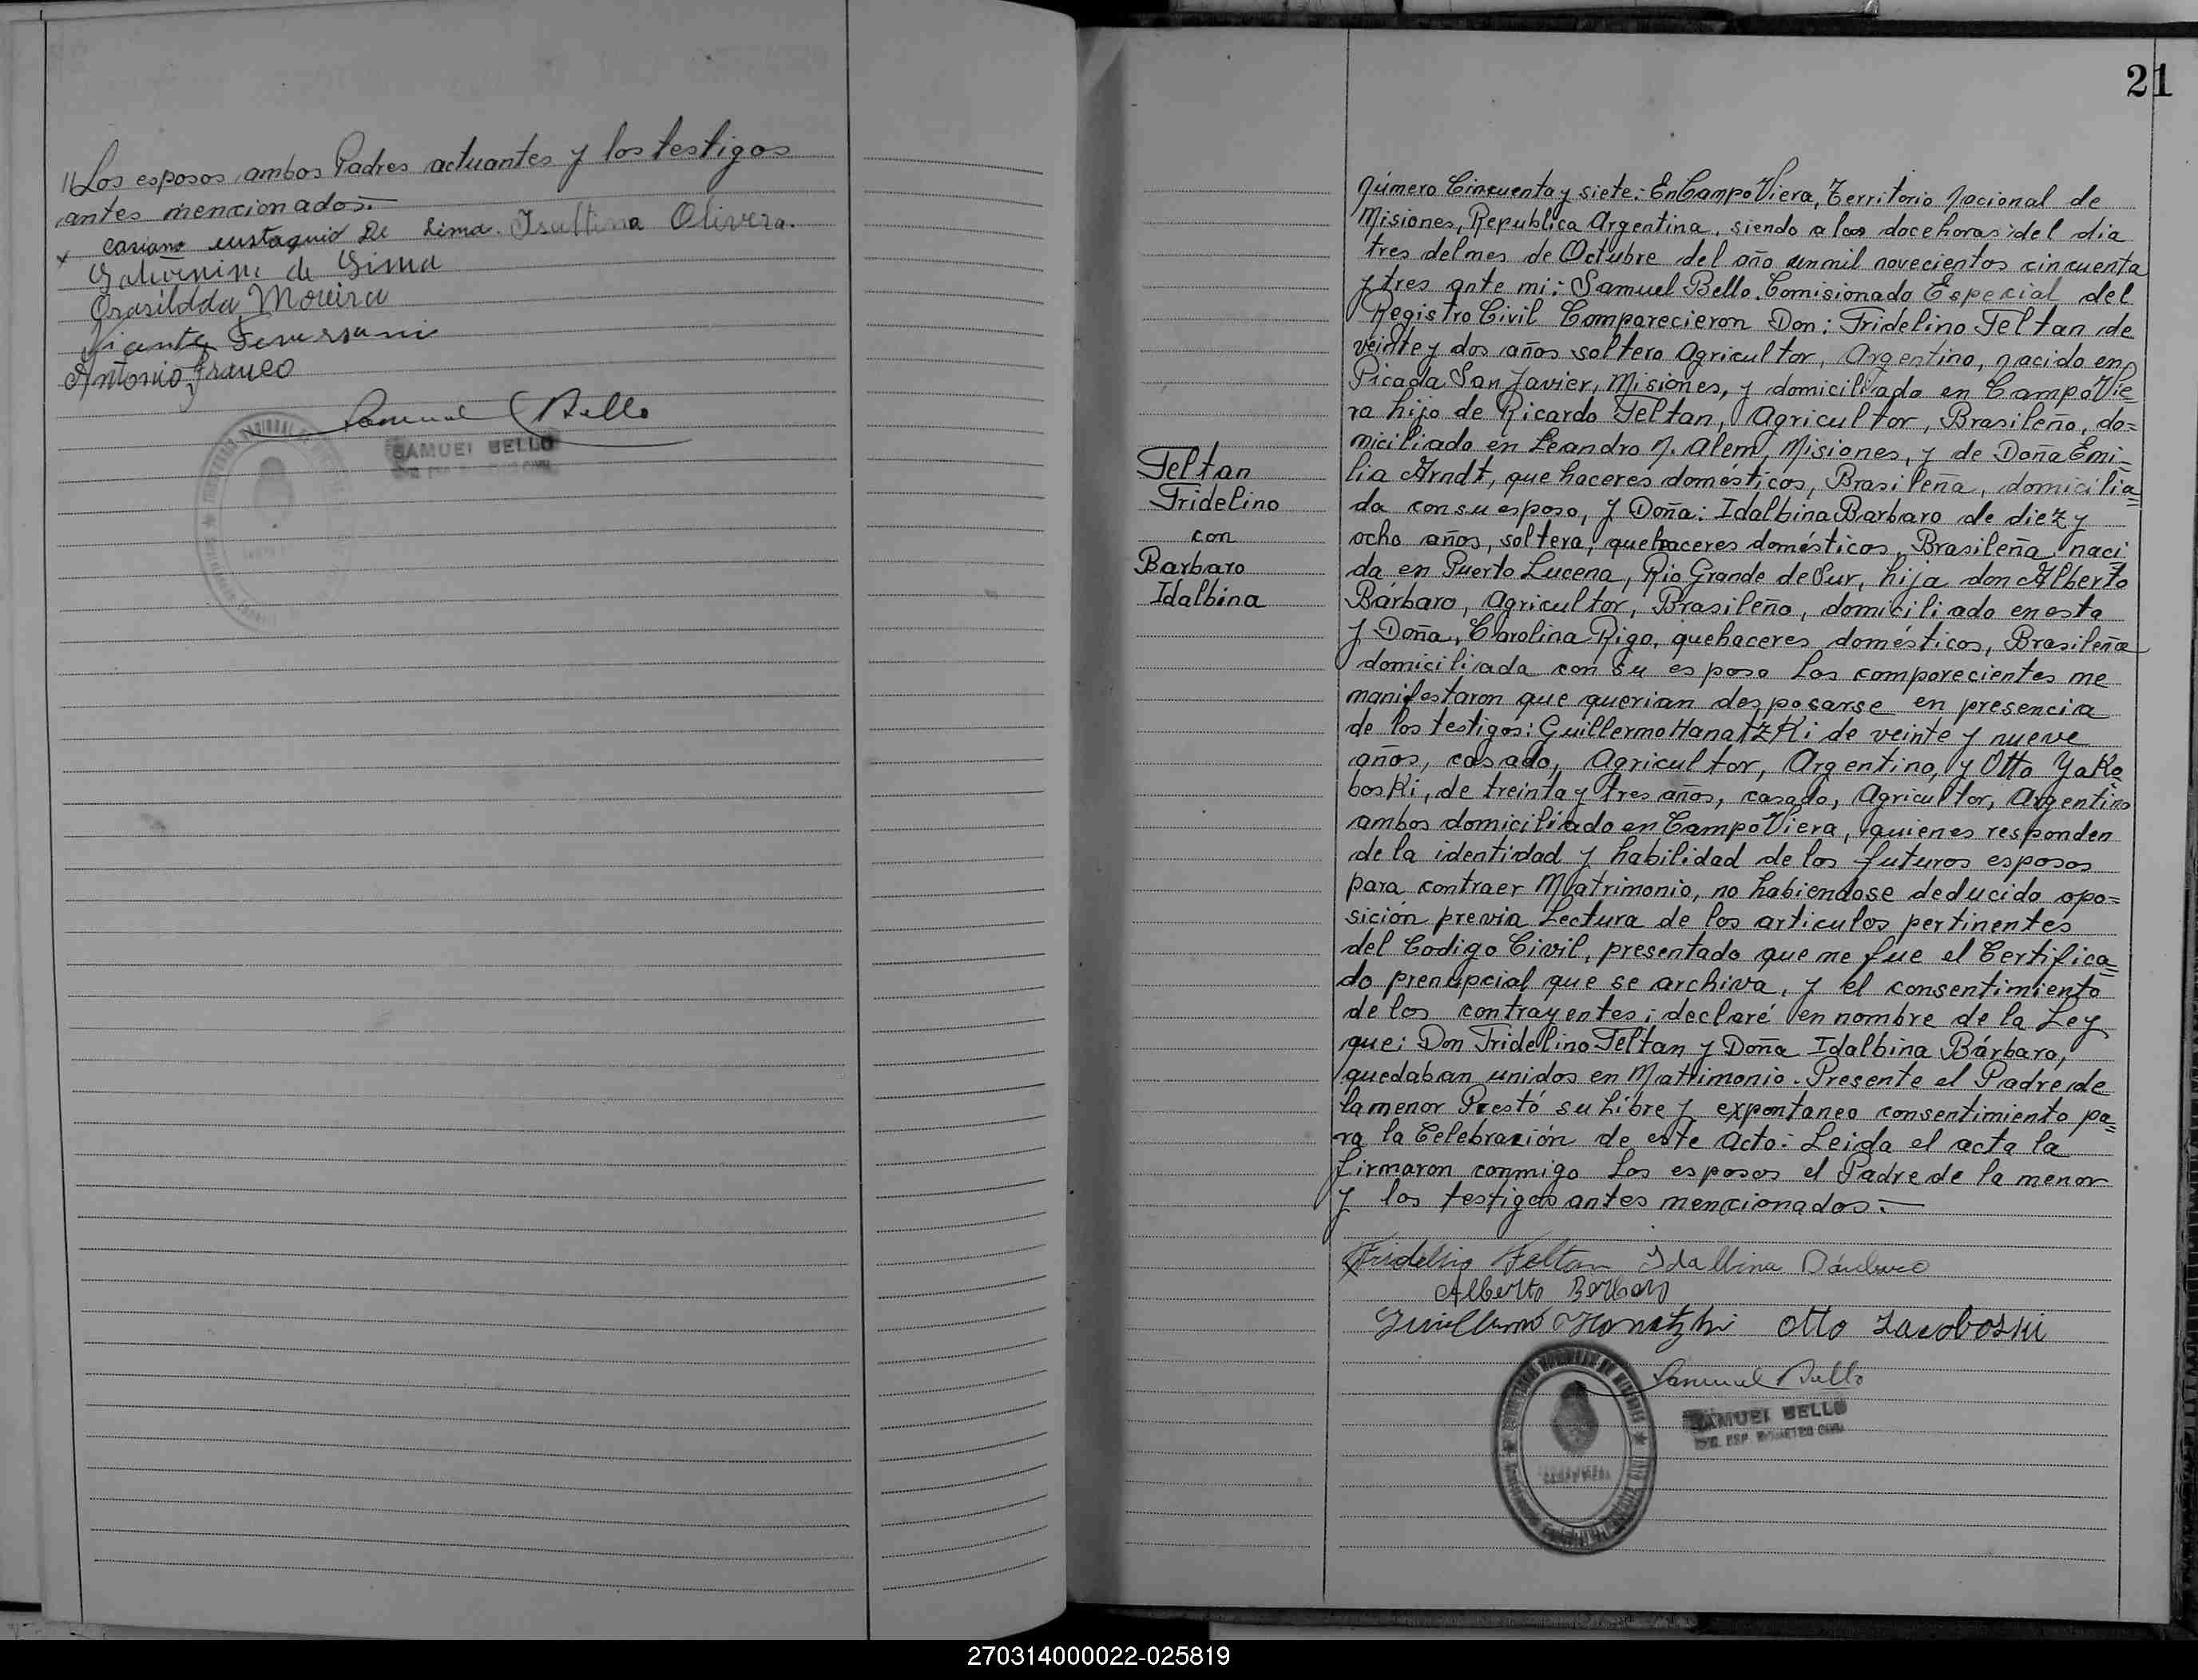 "Los esposos ambos Padres actuantes y los testigos
antes mencionados.—
x casiano eustaquio De Lima. Isaltina Olivera.
de Lima
Orasildda Moreira
Vicente
Antonio Franco
Samuel Bello
SAMUEL BELLO
21
Número Cincuenta y siete: En Campo Viera, Territorio Nacional de
Misiones, Republica Argentina, siendo a las doce horas del dia
tres del mes de Octubre del año un mil novecientos cincuenta
y tres ante mi: Samuel Bello. Comisionado Especial del
Registro Civil Comparecieron Don: Fridelino Feltan de
veinte y dos años soltero Agricultor, Argentino, nacido en
Picada San Javier, Misiones, y domiciliado en Campo Vie=
ra hijo de Ricardo Feltan, Agricultor, Brasileño, do=
miciliado en Leandro N. Alem, Misiones, y de Doña Emi=
lia Arndt, que haceres domésticos, Brasileña, domicilia=
da con su esposo, y Doña: Idalbina Barbaro de diez y
ocho años, soltera, quehaceres domésticos, Brasileña naci
da en Puerto Lucena, Rio Grande de Sur, hija don Alberto
Bárbaro, Agricultor, Brasileño, domiciliado en esta
y Doña, Carolina Rigo, quehaceres domésticos, Brasileña
domiciliada con su esposo Los comparecientes me
manifestaron que querian desposarse en presencia
de los testigos: Guillermo Hanatzki de veinte y nueve
años, casado, Agricultor, Argentino, y Otto Yako
boski, de treinta y tres años, casado, Agricultor, Argentino
ambos domiciliado en Campo Viera, quienes responden
de la identidad y habilidad de los futuros esposos
para contraer Matrimonio, no habiendose deducido opo=
sición previa Lectura de los articulos pertinentes
del Codigo Civil, presentado que me fue el Certifica=
do prenupcial que se archiva, y el consentimiento
de los contrayentes; declaré en nombre de la Ley
que: Don Fridelino Feltan y Doña Idalbina Bárbaro,
quedaban unidos en Matrimonio. Presente el Padre de
la menor Prestó su Libre y expontaneo consentimiento pa=
ra la Celebración de este Acto: Leida el acta la
firmaron conmigo Los esposos el Padre de la menor
y los testigos antes mencionados.—
Feltan
Fridelino
con
Barbaro
Idalbina
Fridelino Feltan Idalbina Bárbaro
Alberto Barbaro
Guillermo Hanatzki Otto Jacoboski
Samuel Bello
SAMUEL BELLO
ESP. REGISTRO CIVIL
270314000022-025819